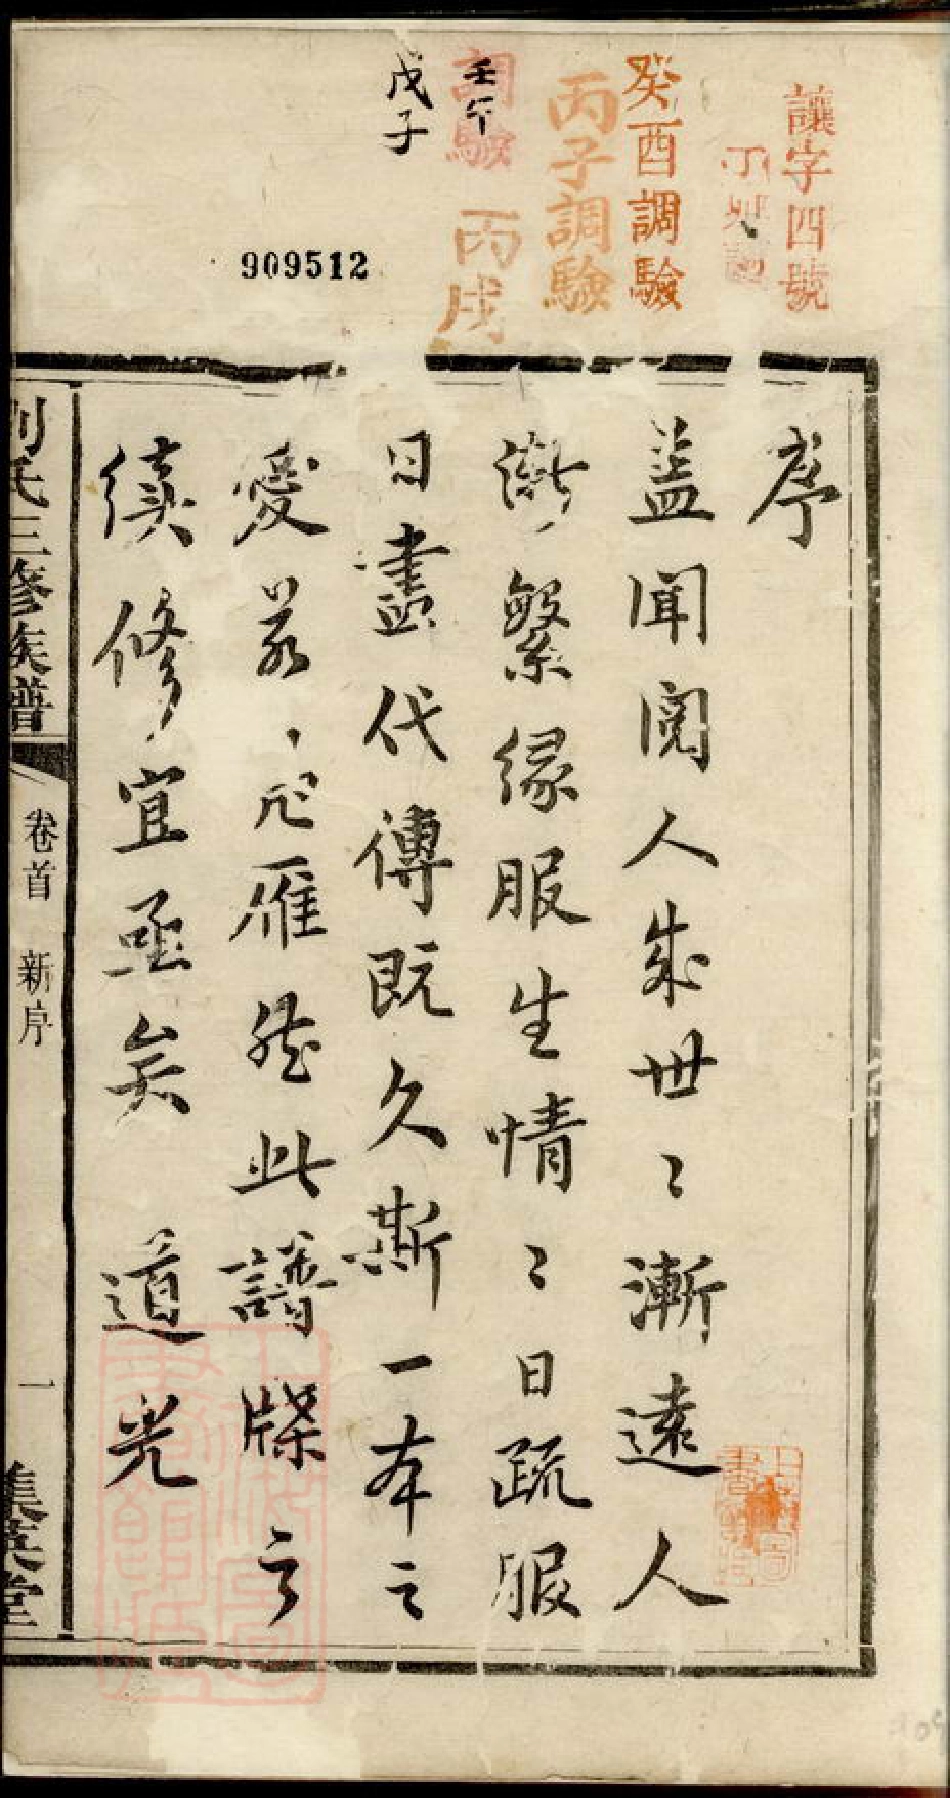 讓字四號
丁卯調
癸酉調驗
丙子調驗
調驗
壬午
丙戌
戊子
909512
序
蓋聞閱人成世〻漸遠人
漸繁緣服生情〻日疏服
日盡代傳既久斯一本之
愛若、鴈然此譜牒之
續修宜亟矣 道光
劉氏三修族譜
卷首 新序
一
集英堂